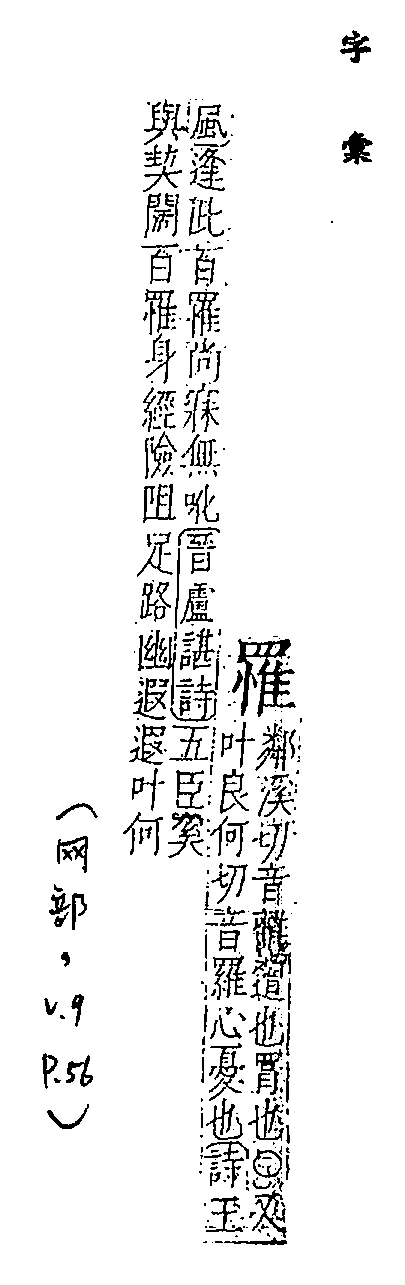 字彙
罹
鄰溪切音離遭也罥也○又
叶良何切音羅心憂也詩王
風逢此百罹尚寐無吪晉盧諶詩五臣奚
與契闊百罹身經險阻足路幽遐遐叶何
(网部,
v.9
P.56)